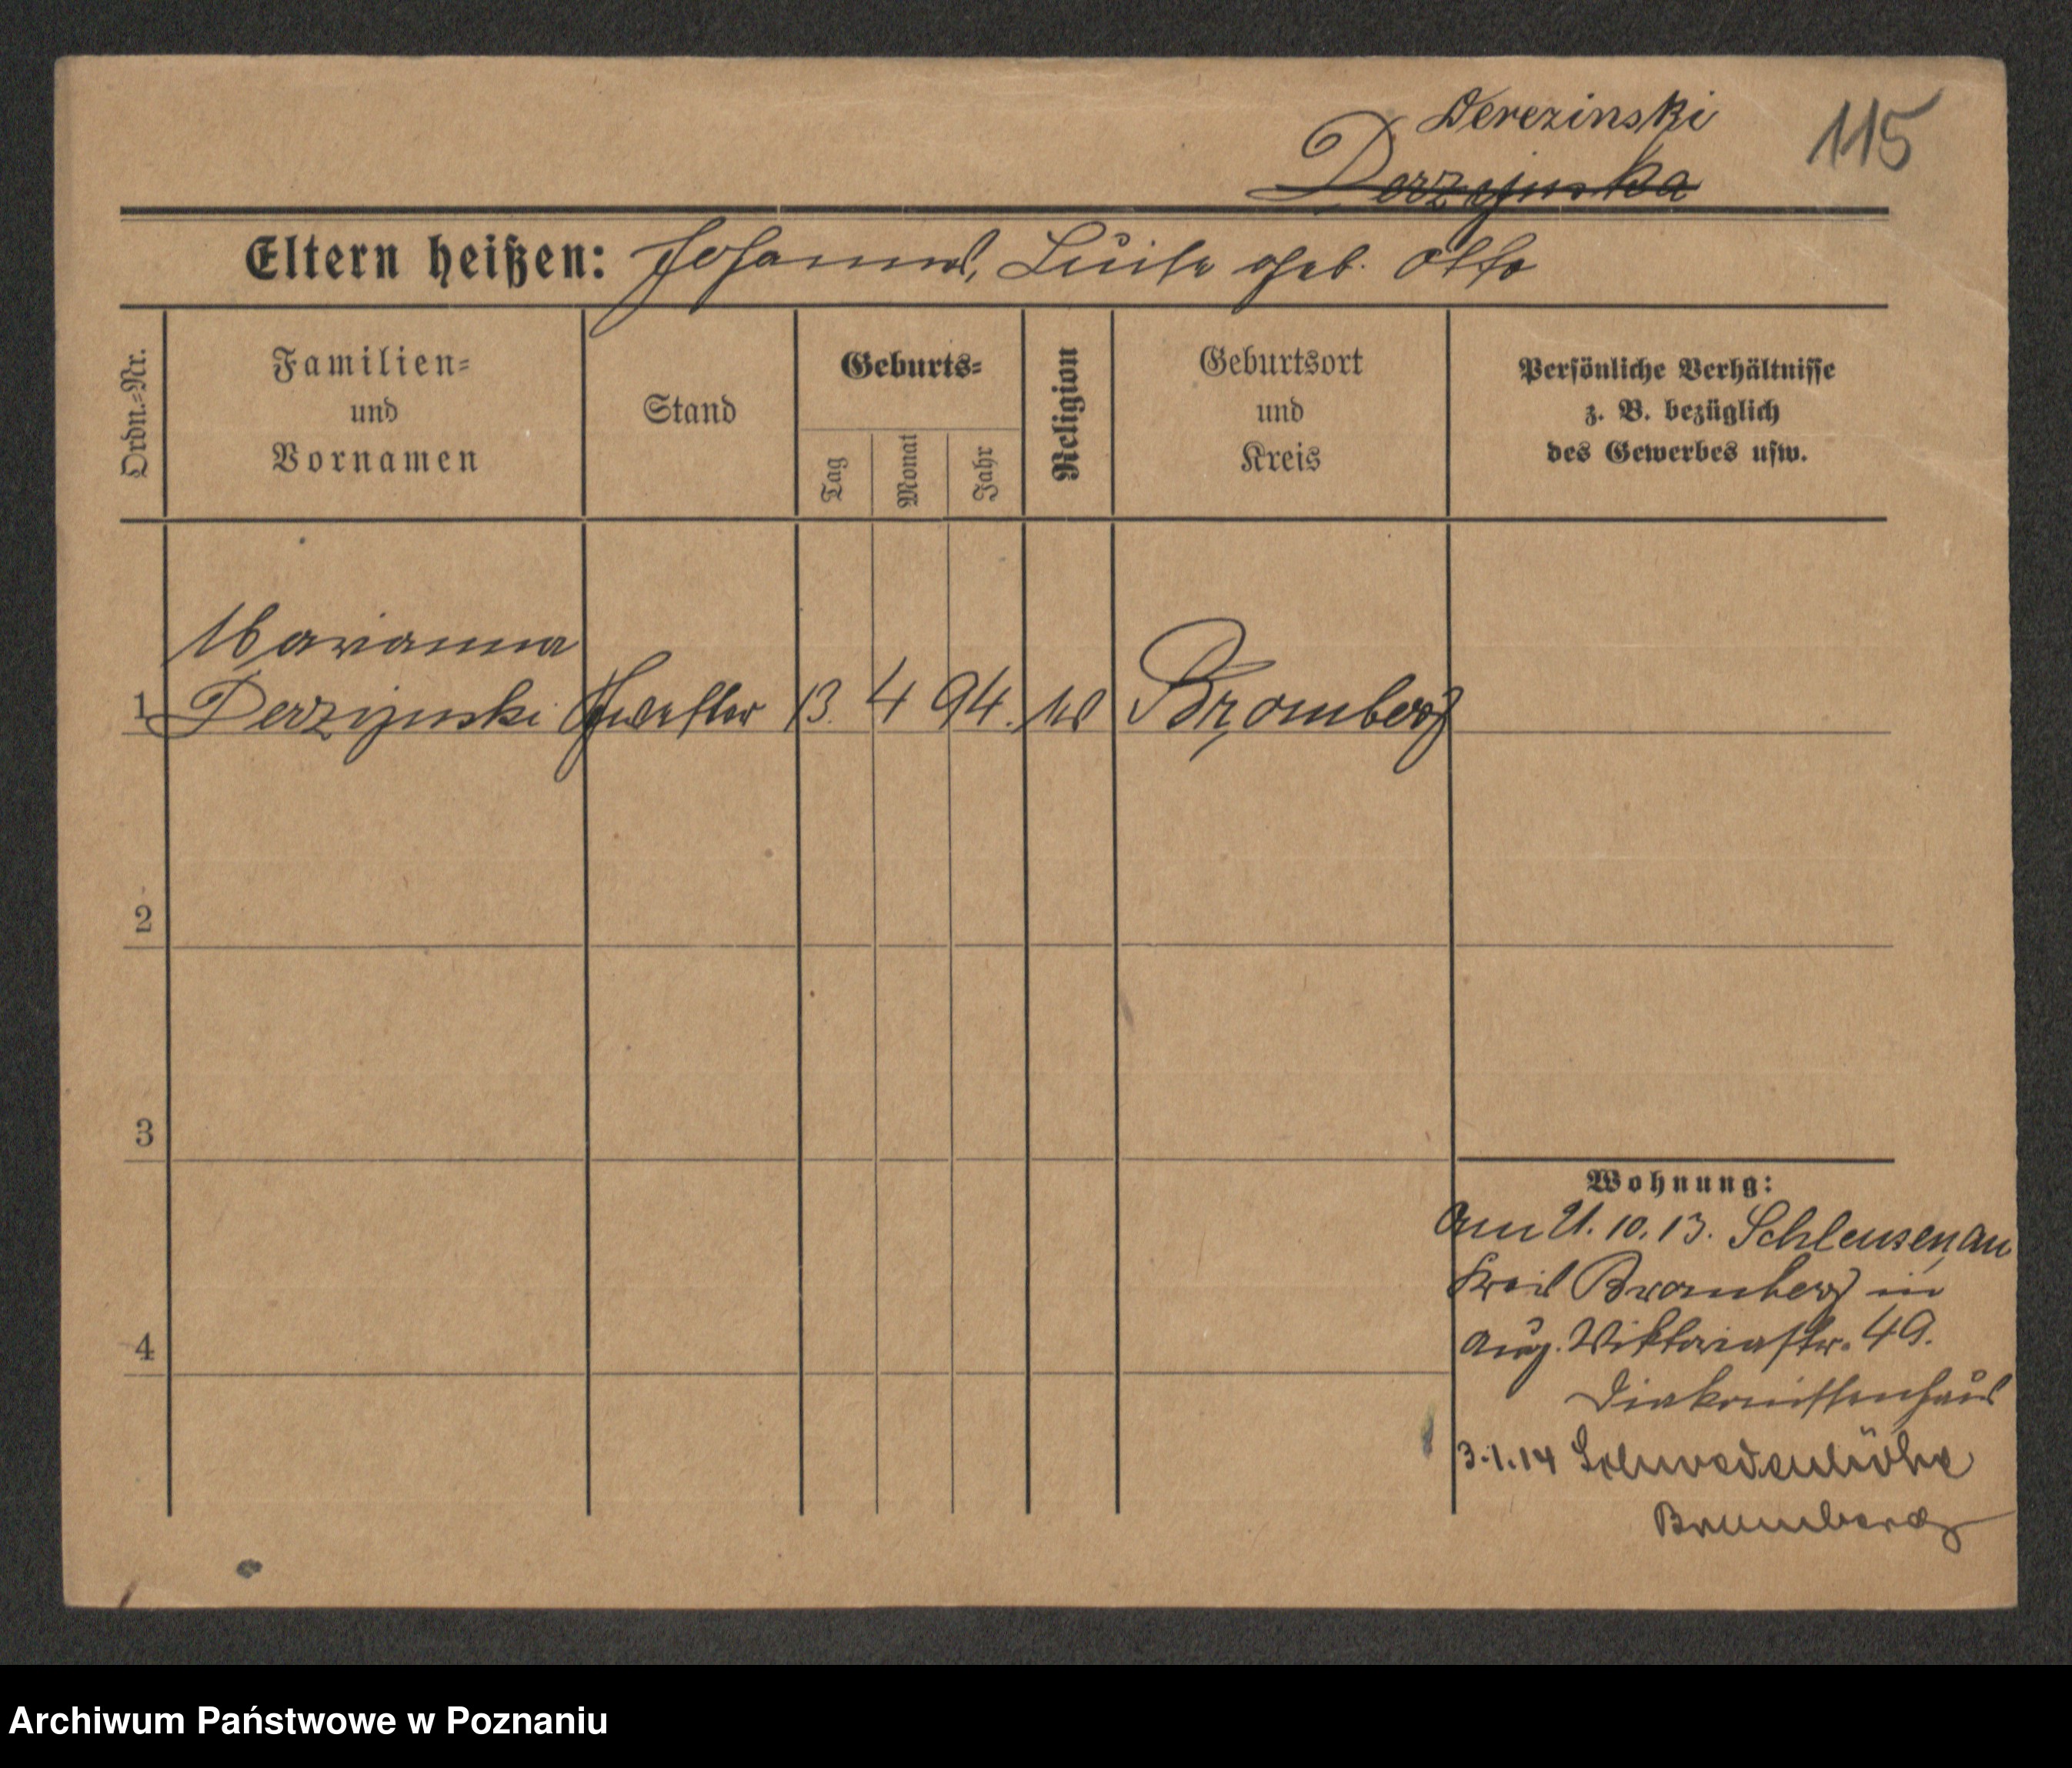 Derezinski
115
Derzynska
Eltern heißen: Johannes, Luise geb. Otto
Ordn.-Nr.
Familien-
und
Vornamen
Stand
Geburts-
Tag
Monat
Jahr
Religion
Geburtsort
und
Kreis
Persönliche Verhältnisse
z. B. bezüglich
des Gewerbes usw.
Marianna
1 Derzynski 13. 4 94. Bromberg
2
3
4
Wohnung:
am 21. 10. 13. Schleusenau
Kreis Bromberg in
Aug. Viktoriastr. 49.
Diakonissenhaus
3.1.14 Schwedenhöhe
Bromberg
Archiwum Państwowe w Poznaniu